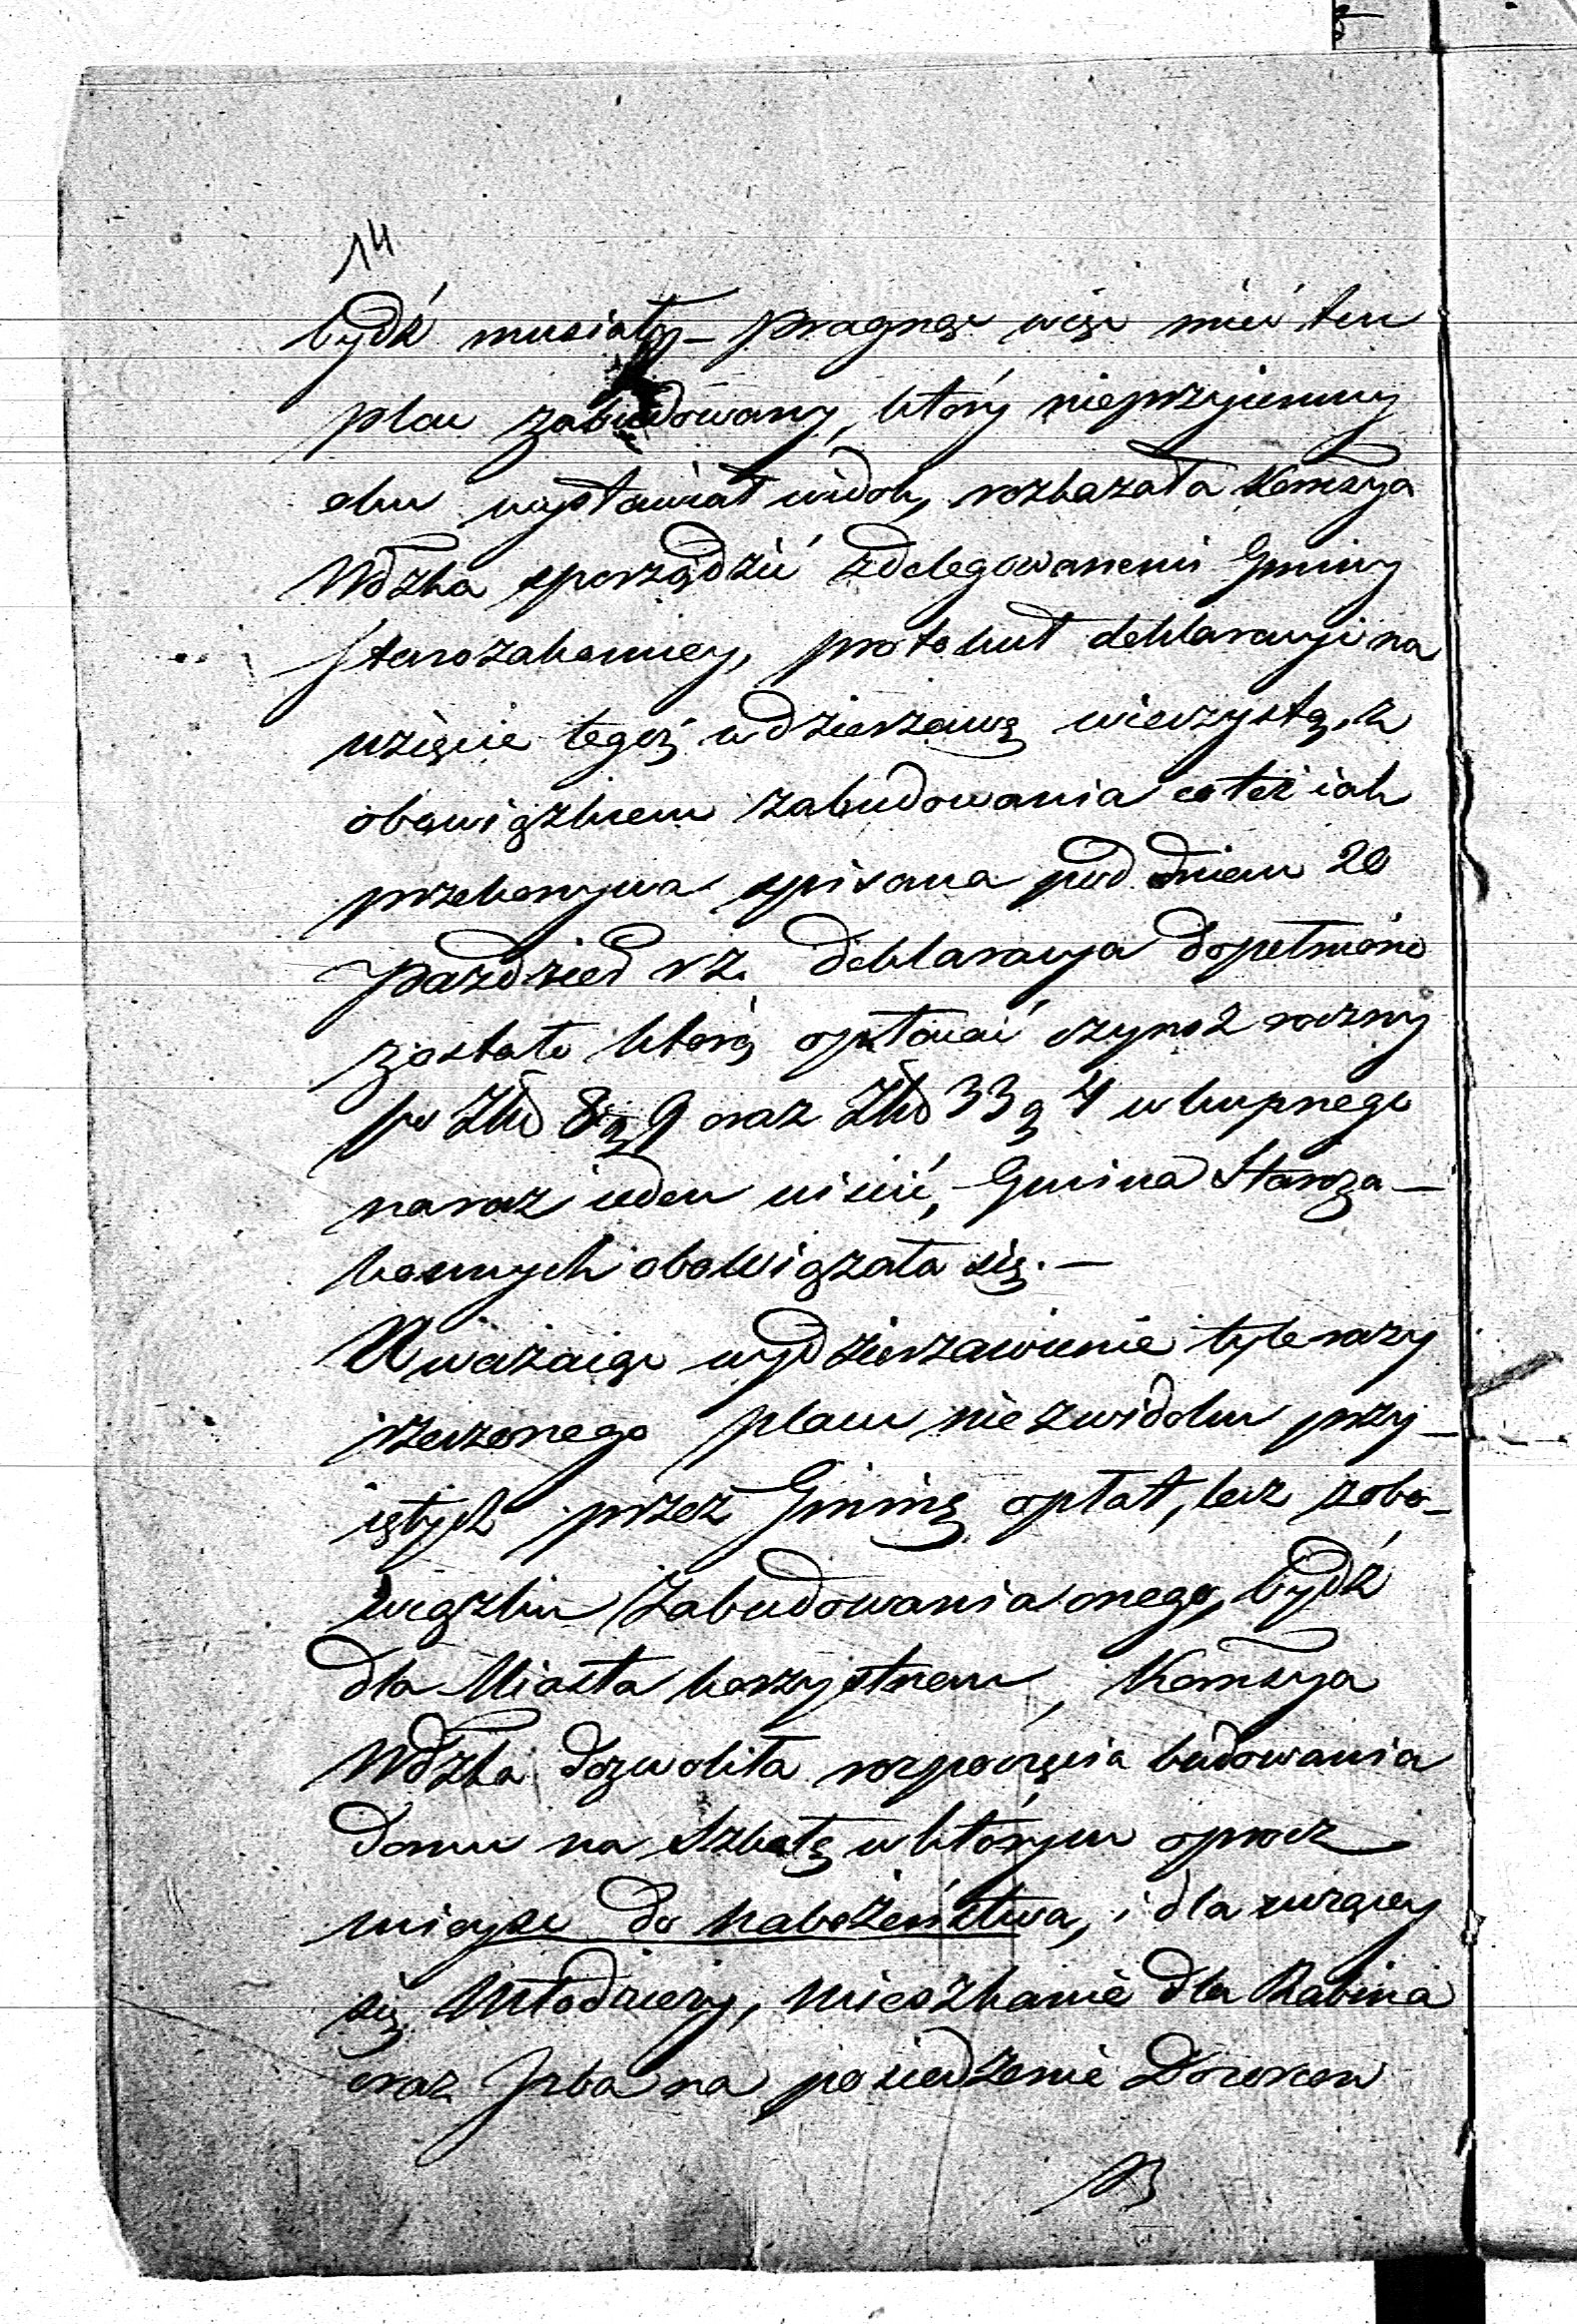 14
bydź musiały – pragnąc więc mieć ten
plac zabudowany, który nieprzyiemny
oku wystawiał widok, rozkazała Kommsya
Wdzka sporządzić zdelegowanemi Gminy
Starozakonney, protokuł deklaracyi na
wzięcie tegoż w dzierzawę wieczystą, z
obowiązkiem zabudowania co też iak
przekonywa spisana pod dniem 20
Pazdzier r z. deklaracya dopełnione
zostało którą opłacać czynsz roczny
po Złło 8 g 9 oraz Złło 33 g 4 wkupnego
naraz ieden uiścić, – Gmina Staroza–
konnych obowiązała się. –
Uważaiąc wydzierzawienie tyle razy
rzeczonego placu nie z widoku przy–
iętych przez Gminę opłat, lecz z obo–
wiązku zabudowania onego, bydź
dla Miasta korzystnem, Kommsya
Wdzka dozwoliła rozpoczęcia budowania
domu na Szkołę w którym oprocz
mieysc do nabożeństwa, i dla uczącey
się Młodzieży, mieszkanie dla Rabina
oraz Jzba na posiedzenie Dozorow